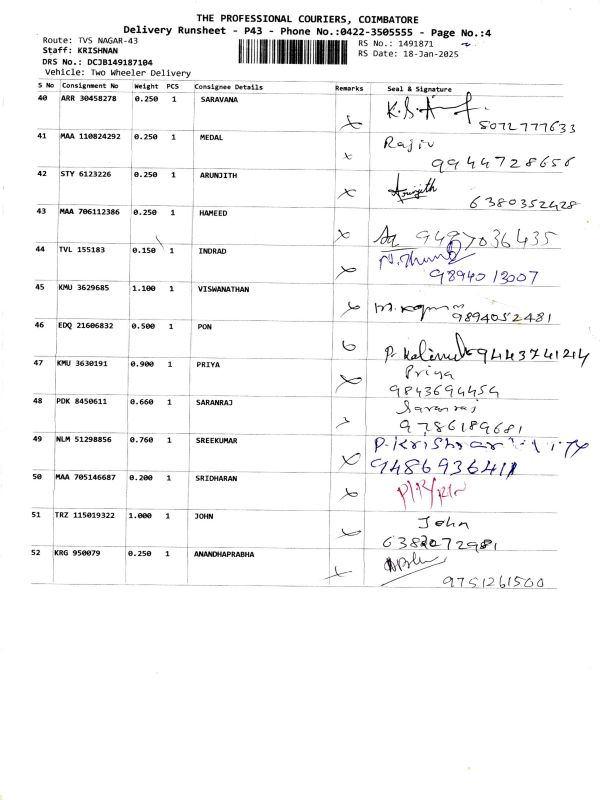 THE PROFESSIONAL COURIERS, COIMBATORE
Delivery Runsheet - P43 - Phone No.:0422-3505555 - Page No.:4
Route: TVS NAGAR-43 RS No.: 1491871
Staff: KRISHNAN RS Date: 18-Jan-2025
DRS No.: DCJB149187104
Vehicle: Two Wheeler Delivery
S No Consignment No Weight PCS Consignee Details Remarks Seal & Signature
40 ARR 30458278 0.250 1 SARAVANA
8072777633
41 MAA 110824292 0.250 1 MEDAL Rajiv
9944728656
42 STY 6123226 0.250 1 ARUNJITH Arunjith
6380352428
43 MAA 706112386 0.250 1 HAMEED
9487036435
44 TVL 155183 0.150 1 INDRAD
9894013007
45 KMU 3629685 1.100 1 VISWANATHAN
9894052481
46 EDQ 21606832 0.500 1 PON
9443741214
47 KMU 3630191 0.900 1 PRIYA Priya
9843694454
48 PDK 8450611 0.660 1 SARANRAJ Saranraj
9786189681
49 NLM 51298856 0.760 1 SREEKUMAR
9486936411
50 MAA 705146687 0.200 1 SRIDHARAN
51 TRZ 115019322 1.000 1 JOHN John
6382072981
52 KRG 950079 0.250 1 ANANDHAPRABHA
9751261500